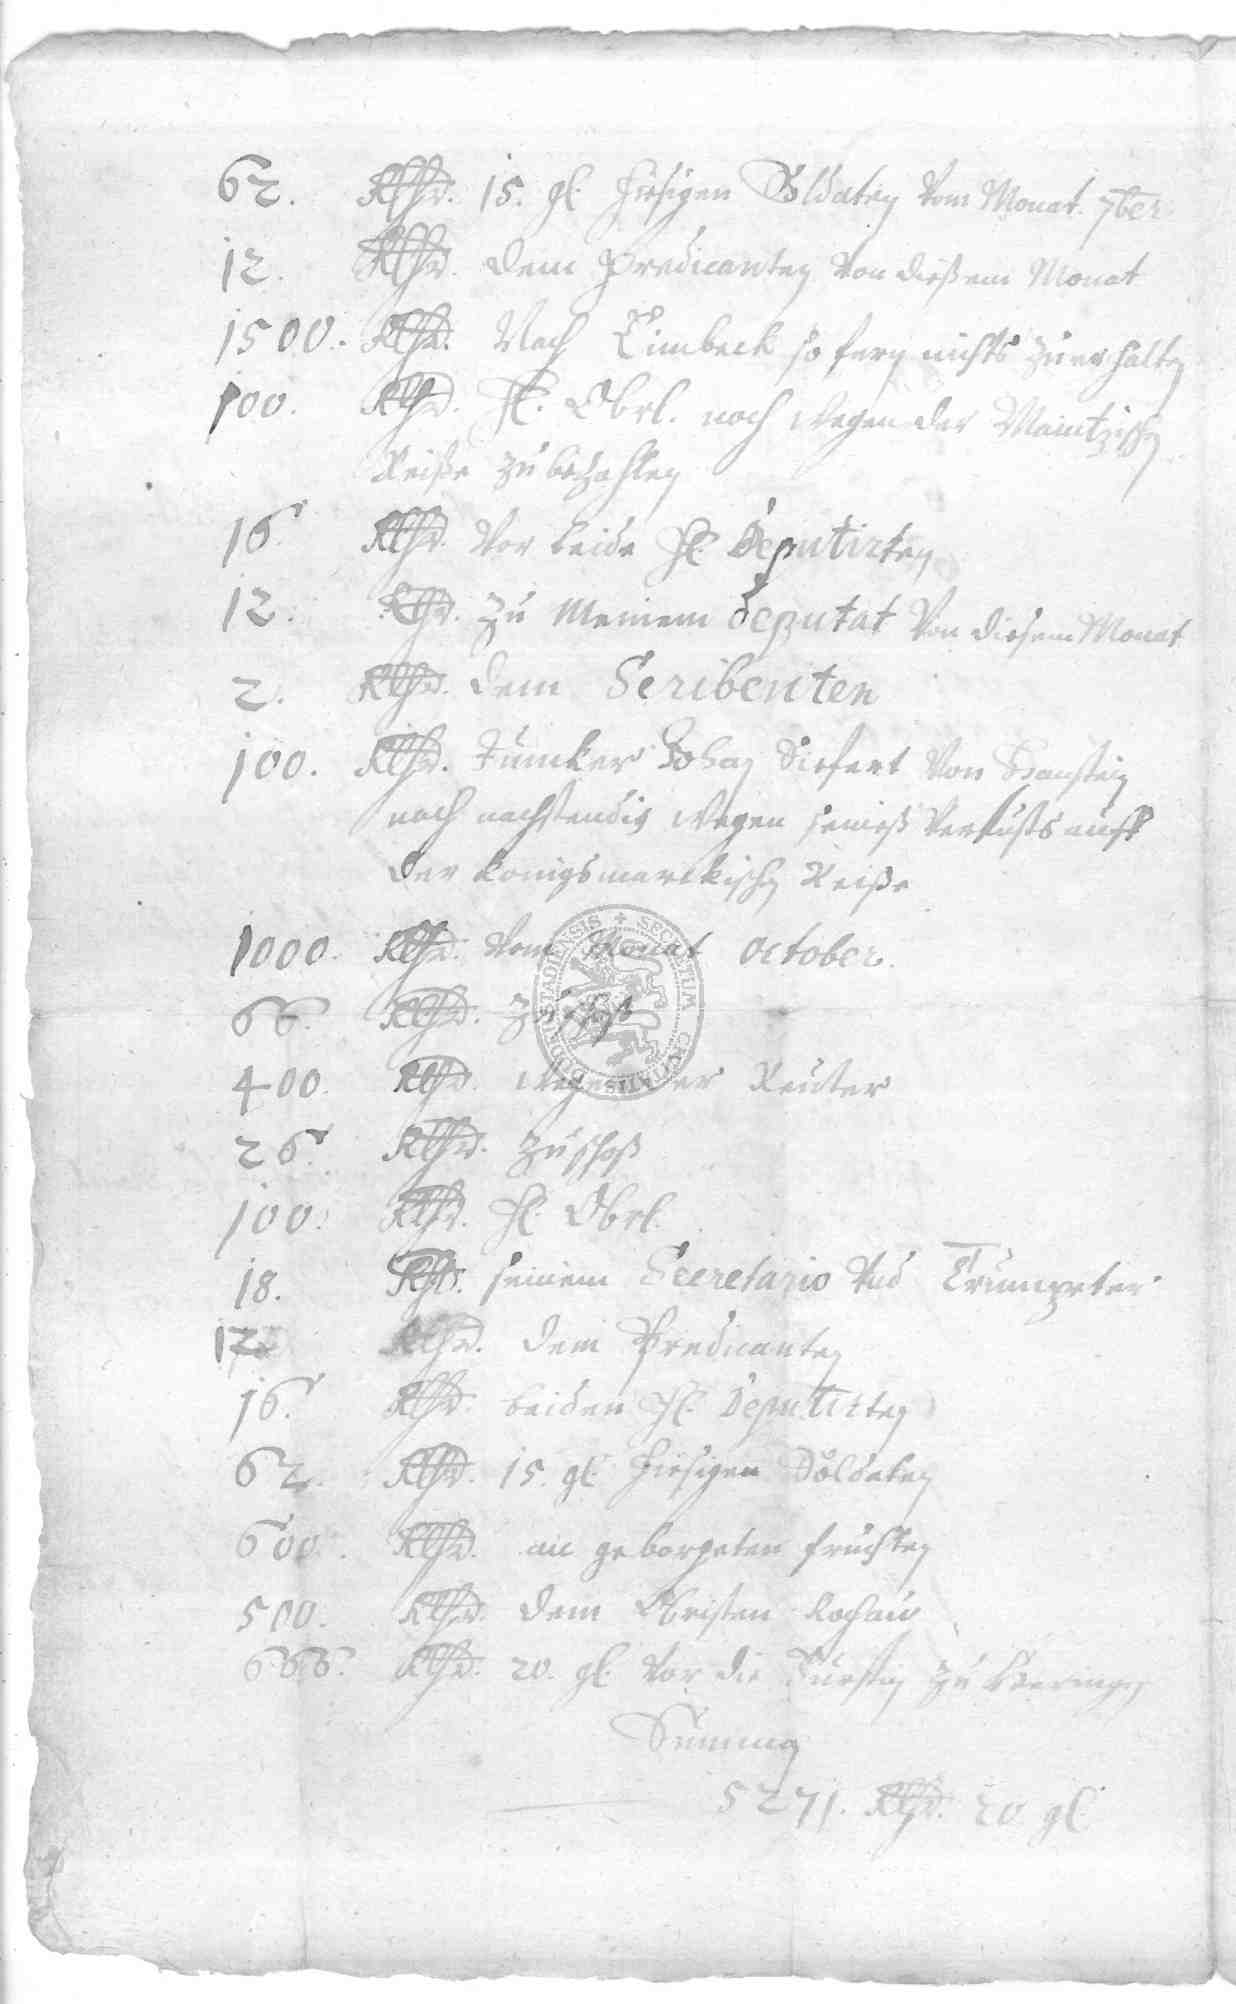 62. Rthlr. 15. gl. hiesigen Soldaten Vom Monat. 7ber.
12. Rthlr. dem Predicanten Von dießem Monat
1500. Rthlr. Nach Eimbeck so fern nichts zu erhalten
100. Rthlr. H. Obrl. noch wegen der Maintzischen
Reiße zu bezahlen
16. Rthlr. Vor beide H. Deputirten
12. Rthlr. zu Meinem Deputat Von diesem Monat
2. Rthlr. dem Scribenten
100. Rthlr. Juncker Siefert Von Hanstein
noch nachstendig wegen seineß Verlusts auff
der Konigsmarckischen Reiße
1000. Rthlr. Vom Monat October.
66. Rthlr. Zuschoß
400. Rthlr. Wegen der Reuter
26. Rthlr. Zuschoß
100. Rthlr. H. Obrl.
18. Rthlr. seinem Secretario Vnd Trumpeter
12 Rthlr. dem Predicanten
16. Rthlr. beiden H. Deputirten
62. Rthlr. 15. gl. hiesigen Soldaten
600. Rthlr. an geborgeten fruchten
500. Rthlr. dem Obristen Kochaw
666. Rthlr. 20. gl. Vor die zu
Summa
5271. Rthlr. 20 gl.
SECRETUM CIVITATIS DUDERSTADIENSIS